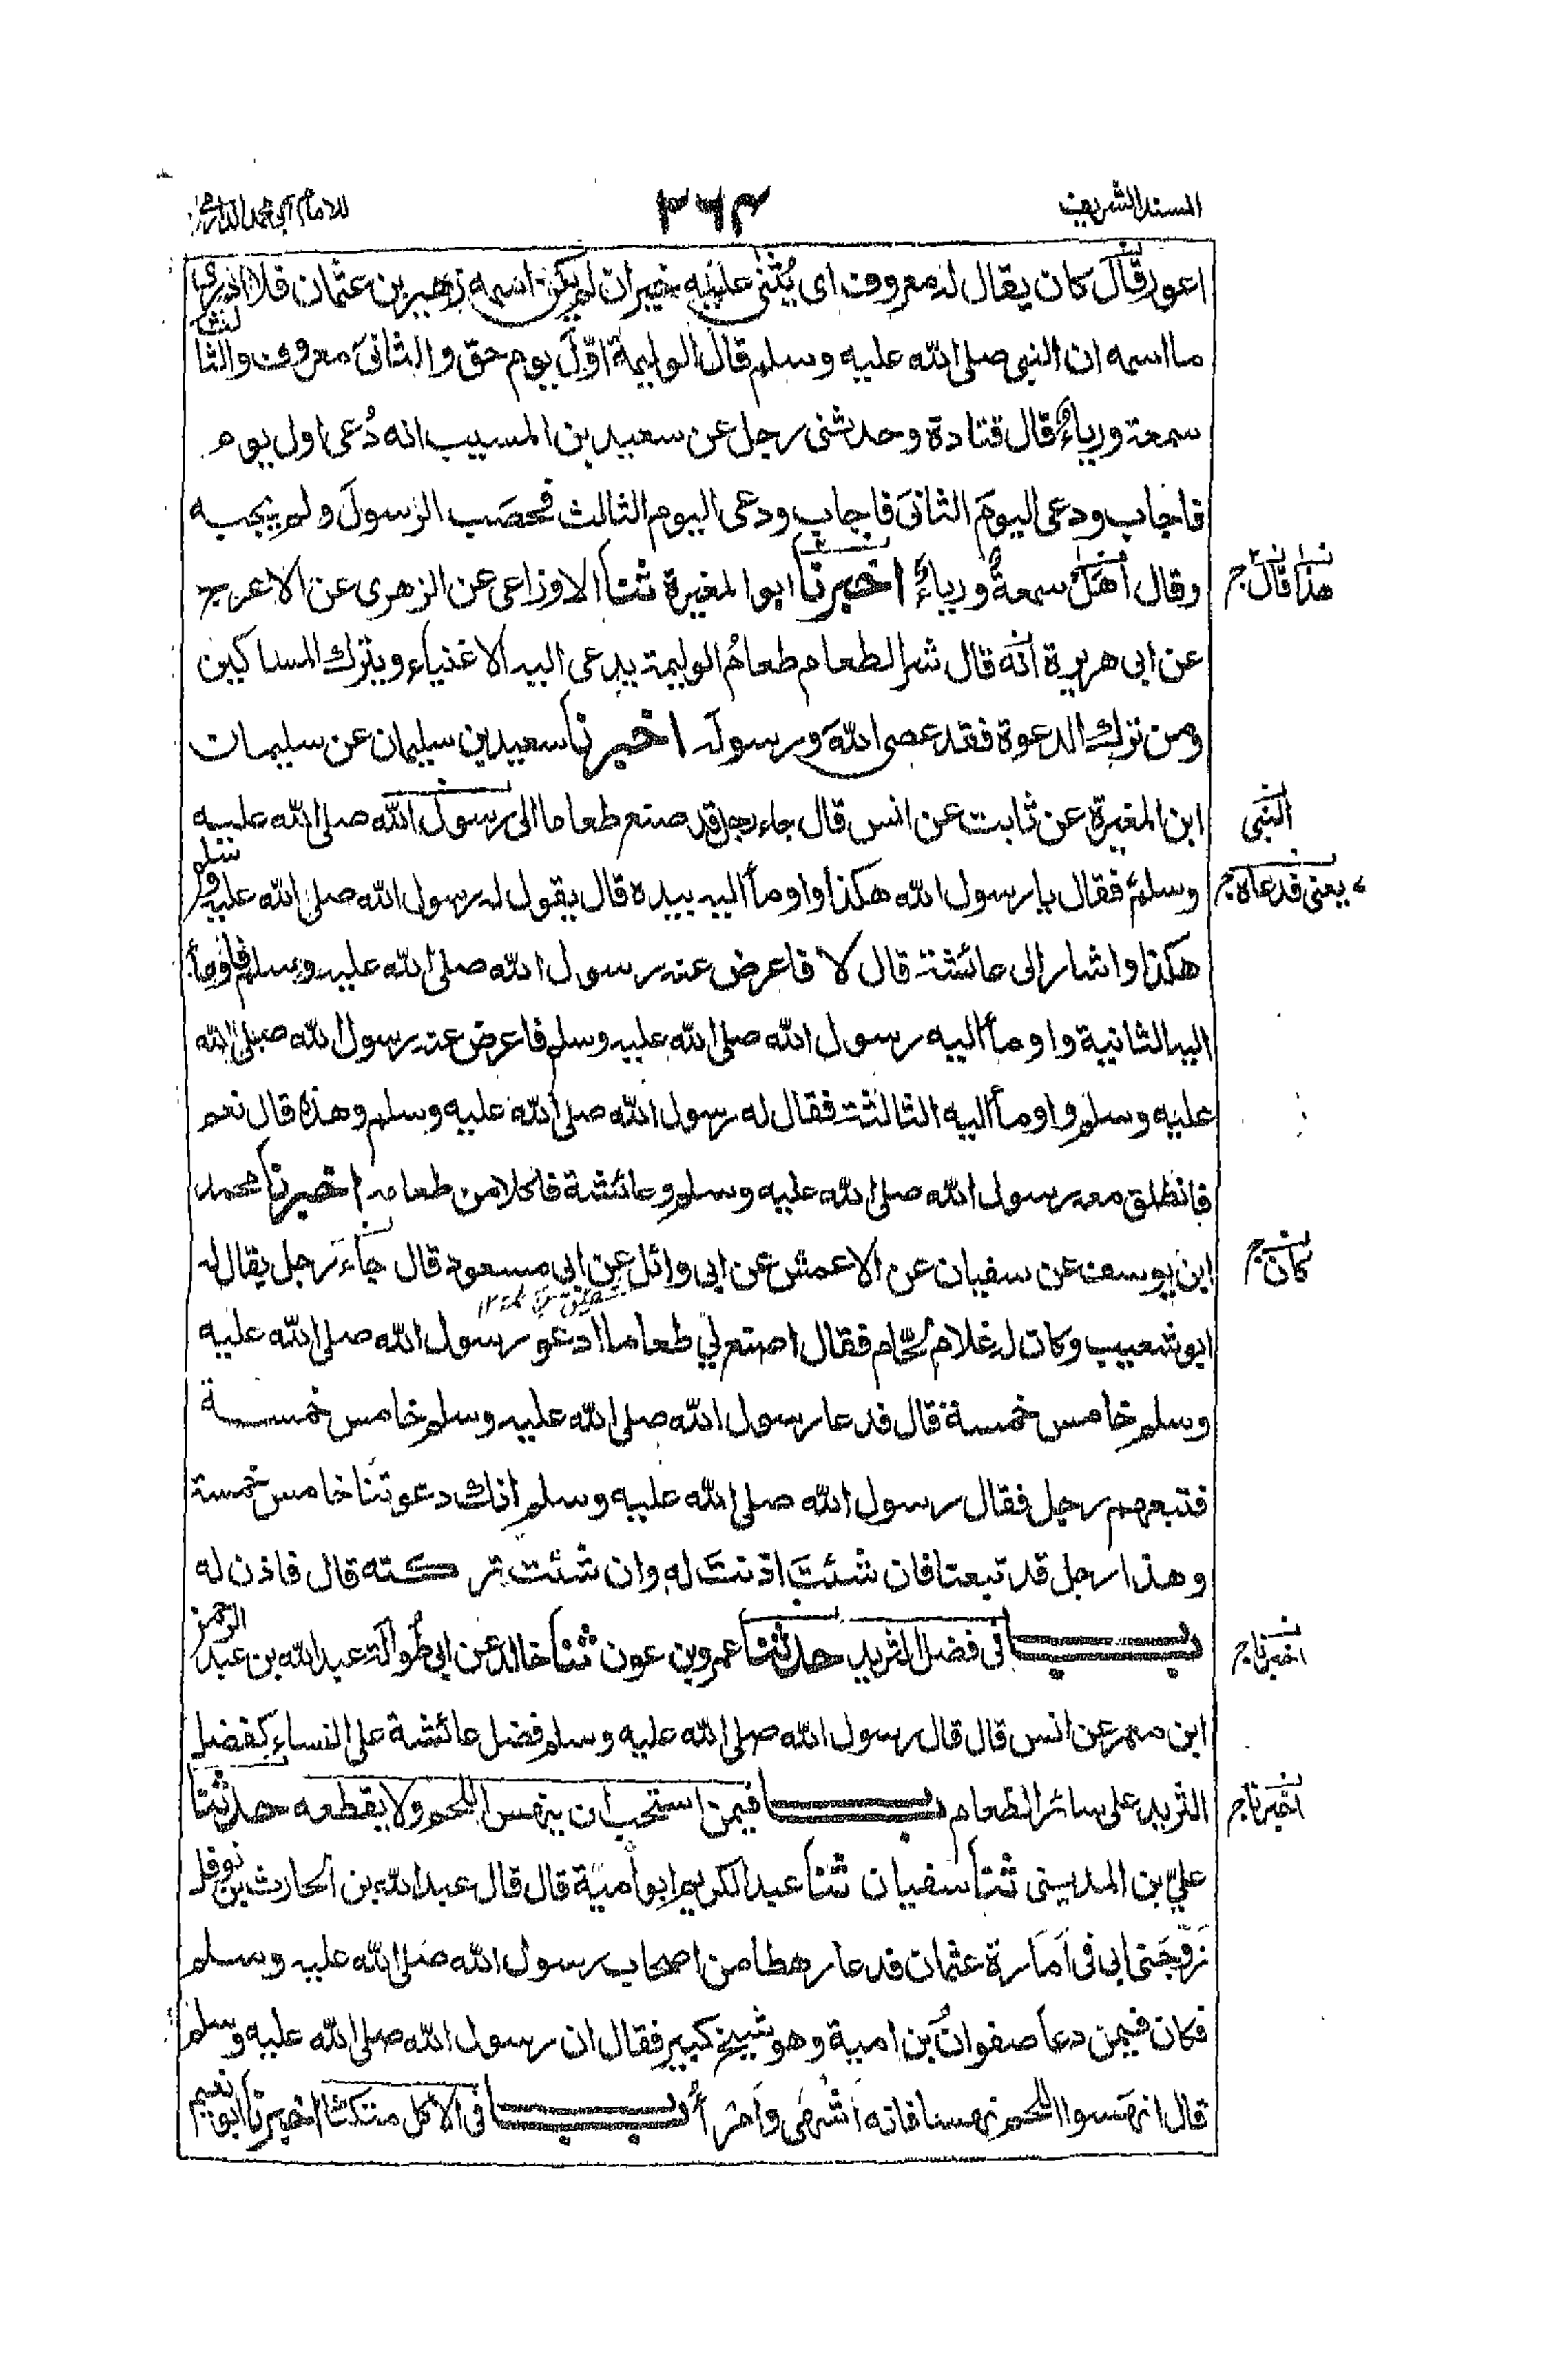 المسند الشريف ٣٦٣ للامام ابى محمد الدارمى
اعور قال كان يقال له معروف اى يُثنى عليه خير ان لم يكن اسمه زهير بن عثمان فلا ادرى
ما اسمه ان النبى صلى الله عليه وسلم قال الوليمة اوّل يوم حق والثانى معروف والثالث
سمعة ورياء قال قتادة وحدثنى رجل عن سعيد بن المسيب انه دُعى اول يوم
فاجاب ودعى اليومَ الثانىَ فاجاب ودعى اليوم الثالث فحصَب الرسولَ ولم يجبه
وقال أهل سمعةٍ ورياءٍ اخبرنا ابو المغيرة ثنا الاوزاعى عن الزهرى عن الاعرج
هذا قال
عن ابى هريرة انه قال شر الطعام طعامُ الوليمة يدعى اليه الاغنياء ويترك المساكين
ومن ترك الدعوة فقد عصى اللهَ ورسولَه اخبرنا سعيد بن سليمان عن سليمان
ابن المغيرة عن ثابت عن انس قال جاء رجل قد صنع طعاما الى رسول الله صلى الله عليه
النبى
وسلم فقال يا رسول الله هكذا واومأ اليه بيده قال يقول له رسول الله صلى الله عليه وسلم
يعنى فدعاه
هكذا واشار الى عائشة قال لا فاعرض عنه رسول الله صلى الله عليه وسلم فاومأ
اليه الثانية واومأ اليه رسول الله صلى الله عليه وسلم فاعرض عنه رسول الله صلى الله
عليه وسلم واومأ اليه الثالثة فقال له رسول الله صلى الله عليه وسلم وهذه قال نعم
فانطلق معه رسول الله صلى الله عليه وسلم وعائشة فاكلا من طعامه اخبرنا محمد
ابن يوسف عن سفيان عن الاعمش عن ابى وائل عن ابى مسعود قال جاء رجل يقال له
كان
ابو شعيب وكان له غلام لحّام فقال اصنع لي طعاما ادعو رسول الله صلى الله عليه
وسلم خامس خمسة قال فدعا رسول الله صلى الله عليه وسلم خامس خمسة
فتبعهم رجل فقال رسول الله صلى الله عليه وسلم انك دعوتنا خامس خمسة
وهذا رجل قد تبعنا فان شئتَ اذنتَ له وان شئت تركته قال فاذن له
باب فى فضل الثريد حدثنا عمرو بن عون ثنا خالد عن ابى طُوالة عبد الله بن عبد الرحمن
اخبرنا
ابن معمر عن انس قال قال رسول الله صلى الله عليه وسلم فضل عائشة على النساء كفضل
الثريد على سائر الطعام باب فيمن استحب ان ينهس اللحم ولا يقطعه حدثنا
اخبرنا
علىّ بن المدينى ثنا سفيان ثنا عبد الكريم ابو أمية قال قال عبد الله بن الحارث بن نوفل
زوّجنى ابى فى اَمارة عثمان فدعا رهطا من اصحاب رسول الله صلى الله عليه وسلم
فكان فيمن دعا صفوانُ بن امية وهو شيخ كبير فقال ان رسول الله صلى الله عليه وسلم
قال انهَسوا اللحم نهسا فانه اشهى وامرأ باب فى الاكل متكئا اخبرنا ابو نعيم